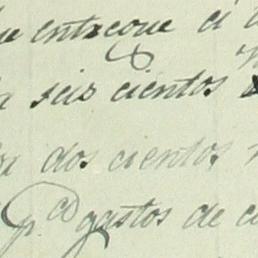 entregue el
seis cientos
dos cientos
p.r gastos de